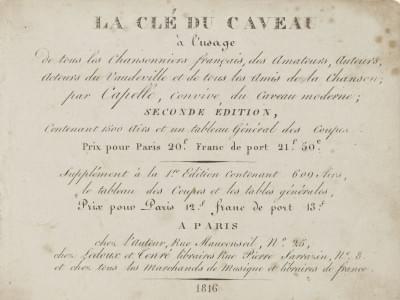 LA CLÉ DU CAVEAU
à l'usage
de tous les Chansonniers français, des Amateurs, Auteurs,
Acteurs du Vaudeville et de tous les Amis de la Chanson;
par Capelle, convive du Caveau moderne;
SECONDE ÉDITION,
Contenant 1500 Airs et un tableau Général des Coupes.
Prix pour Paris 20.f Franc de port 21.f 50.c
Supplément à la 1.re Edition contenant 600 Airs,
le tableau des Coupes et les tables générales,
Prix pour Paris 12.f franc de port 13.f
A PARIS
chez l'auteur, Rue Mauconseil, N.o 25,
chez Ledoux et Tenré libraires Rue Pierre Sarrazin, N.o 8.
et chez tous les Marchands de Musique et libraires de france.
1816